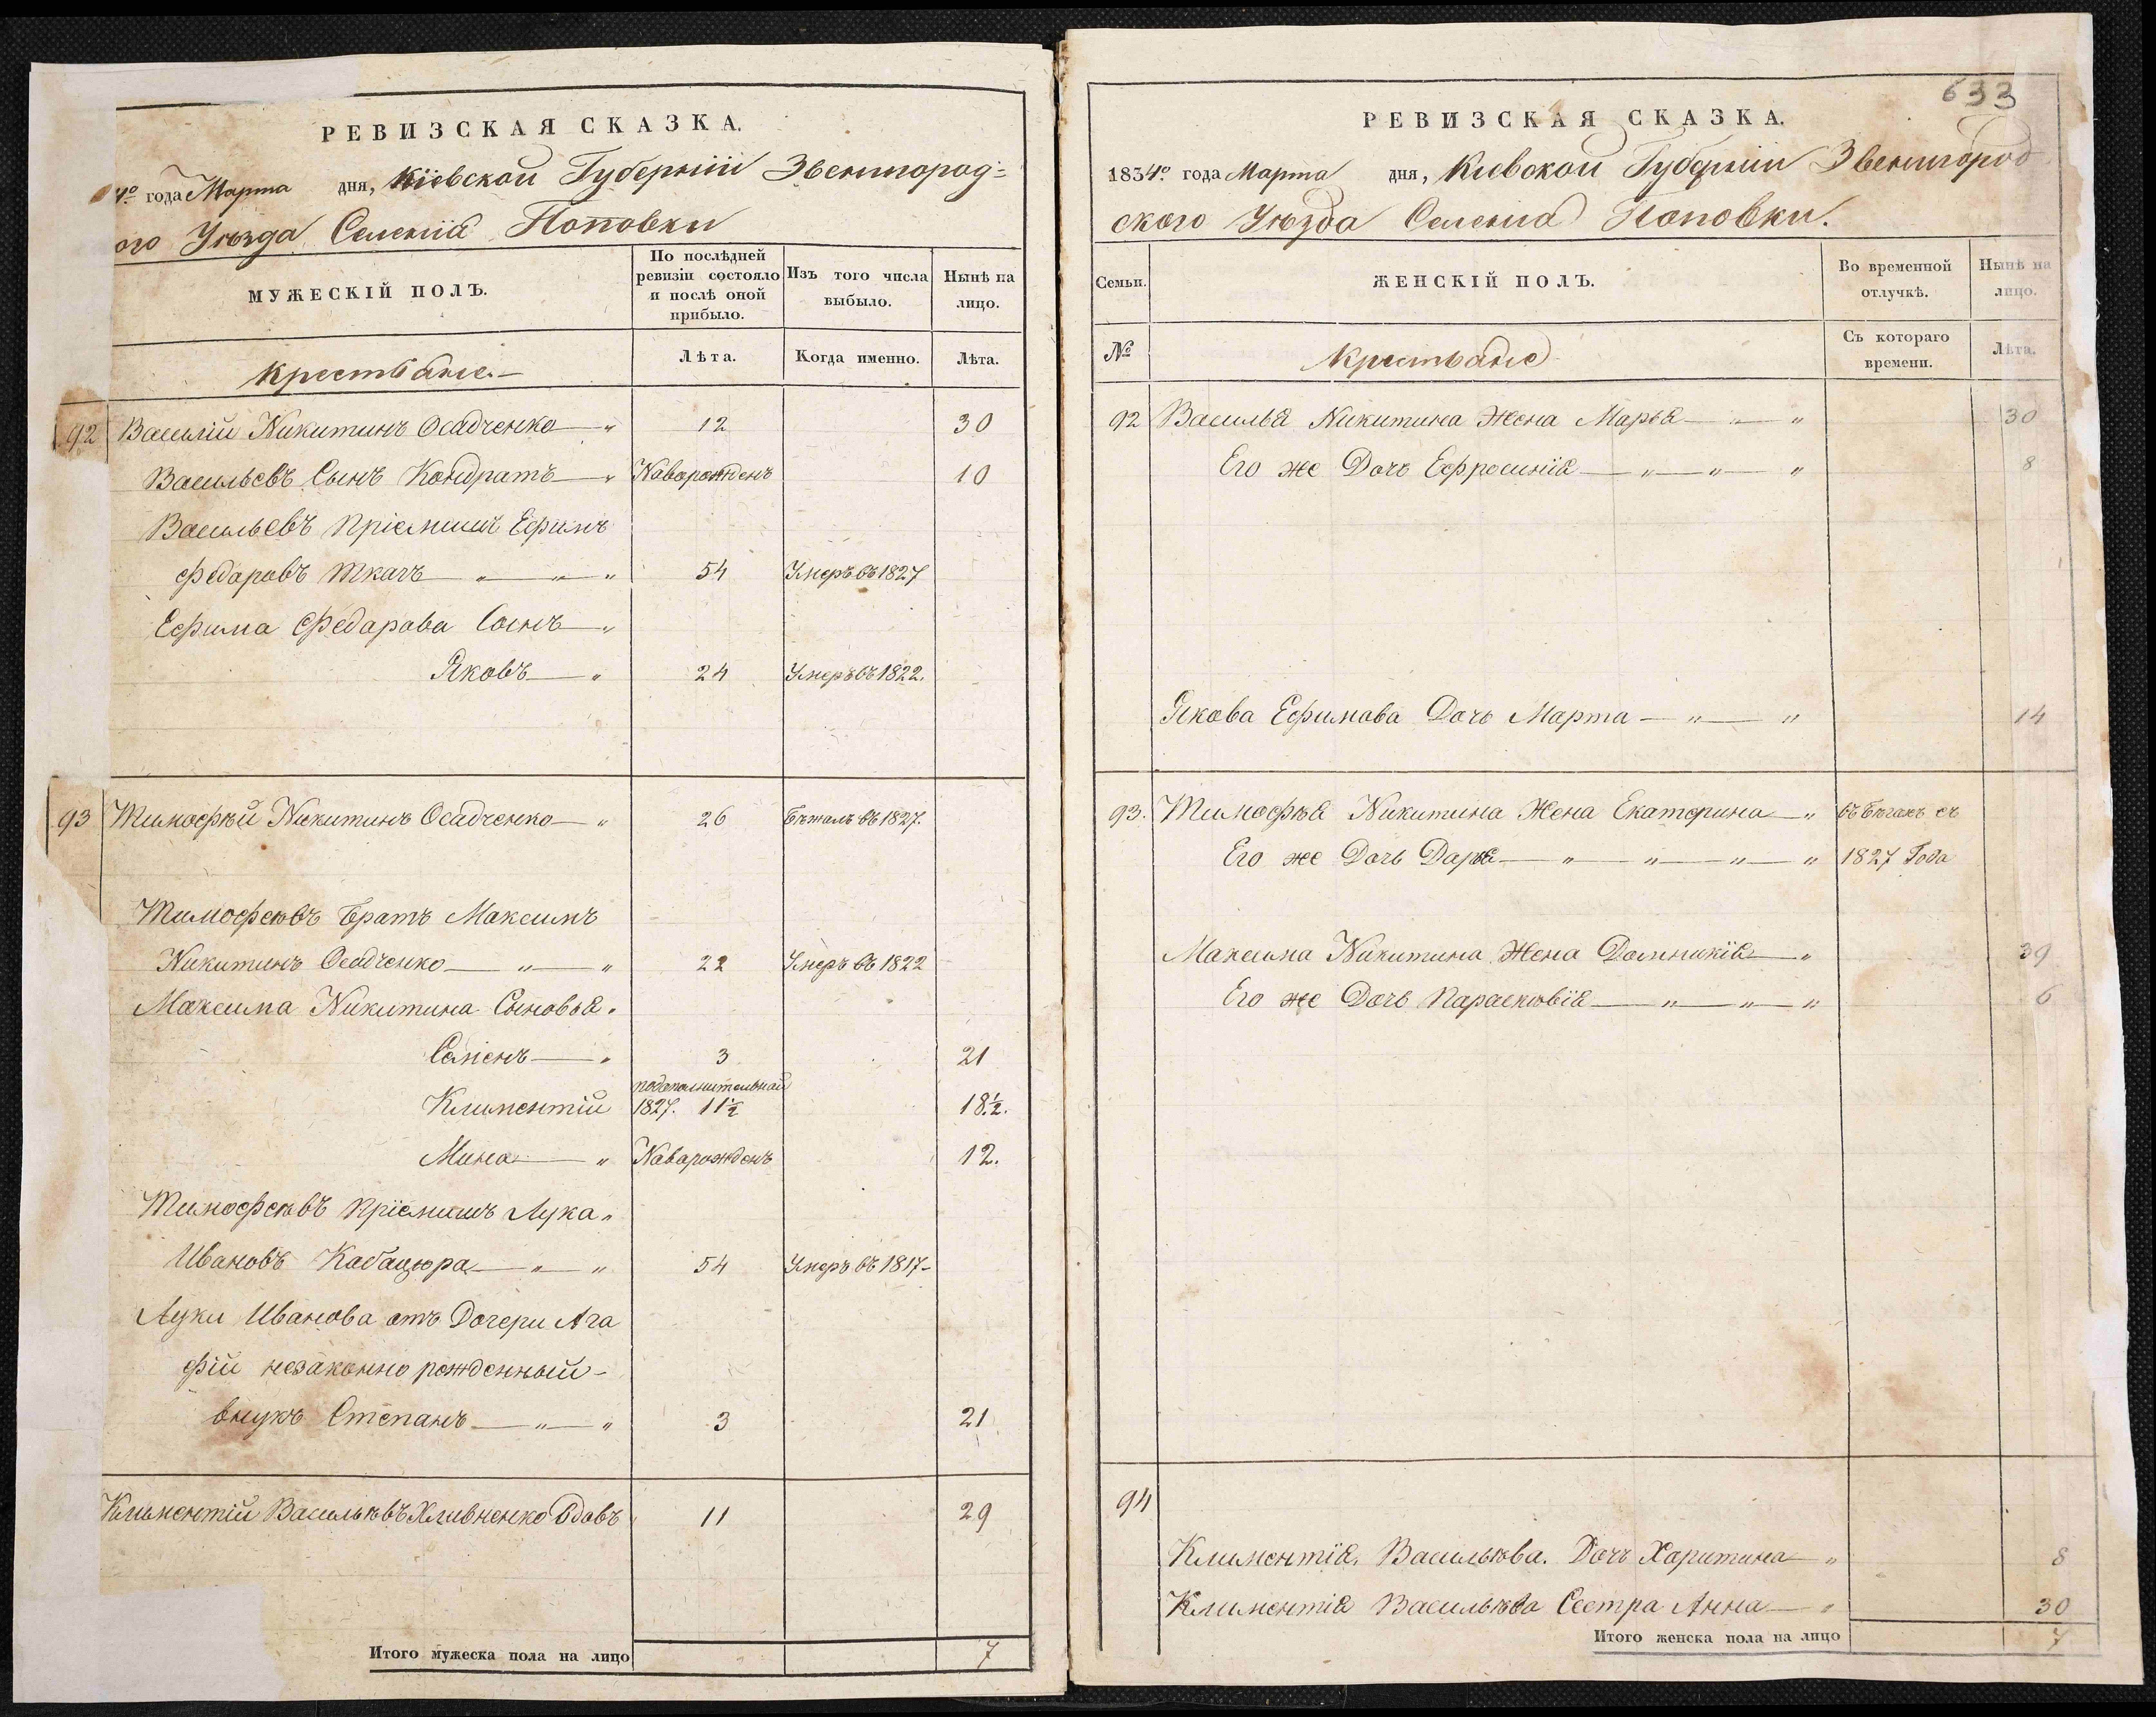 РЕВИЗСКАЯ СКАЗКА.
4º года Марта дня, Кіевской Губерніи Звенигород=
ого Уѣзда Селенія Поповки
МУЖЕСКІЙ ПОЛЪ.
По послѣдней ревизіи состояло и послѣ оной прибыло.
Изъ того числа выбыло.
Нынѣ на лицо.
Крестьяне.
Лѣта.
Когда именно.
Лѣта.
92 Василій Никитинъ Осадченко — „ 12 30
Васильевъ Сынъ Кондратъ — „ Наворожденъ 10
Васильевъ Пріемышъ Ефимъ
Федаровъ Ткачъ — „ — „ — „ 54 Умеръ въ 1827
Ефима Федарова Сынъ — „
Яковъ — „ 24 Умеръ въ 1822.
93 Тимофѣй Никитинъ Осадченко — „ 26 Бѣжалъ въ 1827.
Тимофеѣвъ Братъ Максимъ
Никитинъ Осадченко — „ — „ 22 Умеръ въ 1822
Максима Никитина Сыновья „
Семенъ — „ 3 21
Климентій подополнительной 1827. 11½ 18½.
Мина — „ Наворожденъ 12.
Тимофеѣвъ Пріемышъ Лука „
Ивановъ Кабацюра — „ — „ 54 Умеръ въ 1817 –
Луки Иванова отъ Дочери Ага
фій незаконно рожденный –
внукъ Степанъ — „ — „ 3 21
Климентій Васильѣвъ Хливненко Вдовъ 11 29
Итого мужеска пола на лицо 7
633
РЕВИЗСКАЯ СКАЗКА.
1834º года Марта дня, Кіевской Губерніи Звенигород
ского Уѣзда Селенія Поповки.
Семьи.
ЖЕНСКІЙ ПОЛЪ.
Во временной отлучкѣ.
Нынѣ на лицо.
№
Крестьяне
Съ котораго времени.
Лѣта.
92 Василья Никитина Жена Марья — „ — „ 30
Его же Дочь Ефросинія — „ — „ — „ 8
Якова Ефимова Дочь Марта — „ — „ 14
93. Тимофѣя Никитина Жена Екатерина — „ въ бѣгахъ съ
Его же Дочь Дарья — „ — „ — „ — „ 1827 Года
Максима Никитина Жена Домникія — „ 39
Его же Дочь Параскѣвія — „ — „ — „ 6
94
Климентія Васильѣва. Дочь Харитина — „ 8
Климентія Васильѣва Сестра Анна — „ 30
Итого женска пола на лицо 7